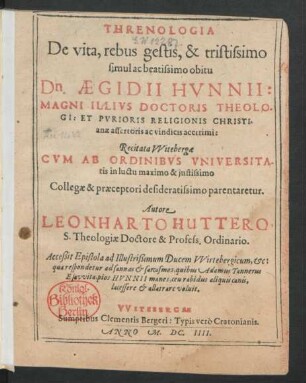 THRENOLOGIA
De vita, rebus gestis, & tristissimo
simul ac beatissimo obitu
Dn. ÆGIDII HVNNII:
MAGNI ILLIVS DOCTORIS THEOLO-
GI: ET PVRIORIS RELIGIONIS CHRISTI-
anæ assertoris ac vindicis acerrimi:
Recitata VVitebergæ
CVM AB ORDINIBVS VNIVERSITA-
tis in luctu maximo & justissimo
Collegæ & præceptori desideratissimo parentaretur.
Autore
LEONHARTO HUTTERO
S. Theologiæ Doctore & Profess. Ordinario.
Accessit Epistola ad Illustrissimum Ducem VVirtebergicum, &c:
qua respondetur ad sannas & sarcasmos, quibus Adamus Tannerus
Esauvita pios HVNNII manes, ceu rabidus aliquis canis,
lacessere & allatrare voluit.
VVITEBERGÆ
Sumptibus Clementis Bergeri: Typis verò Cratonianis.
ANNO M. DC. IIII.
Königl.
Bibliothek
Berlin